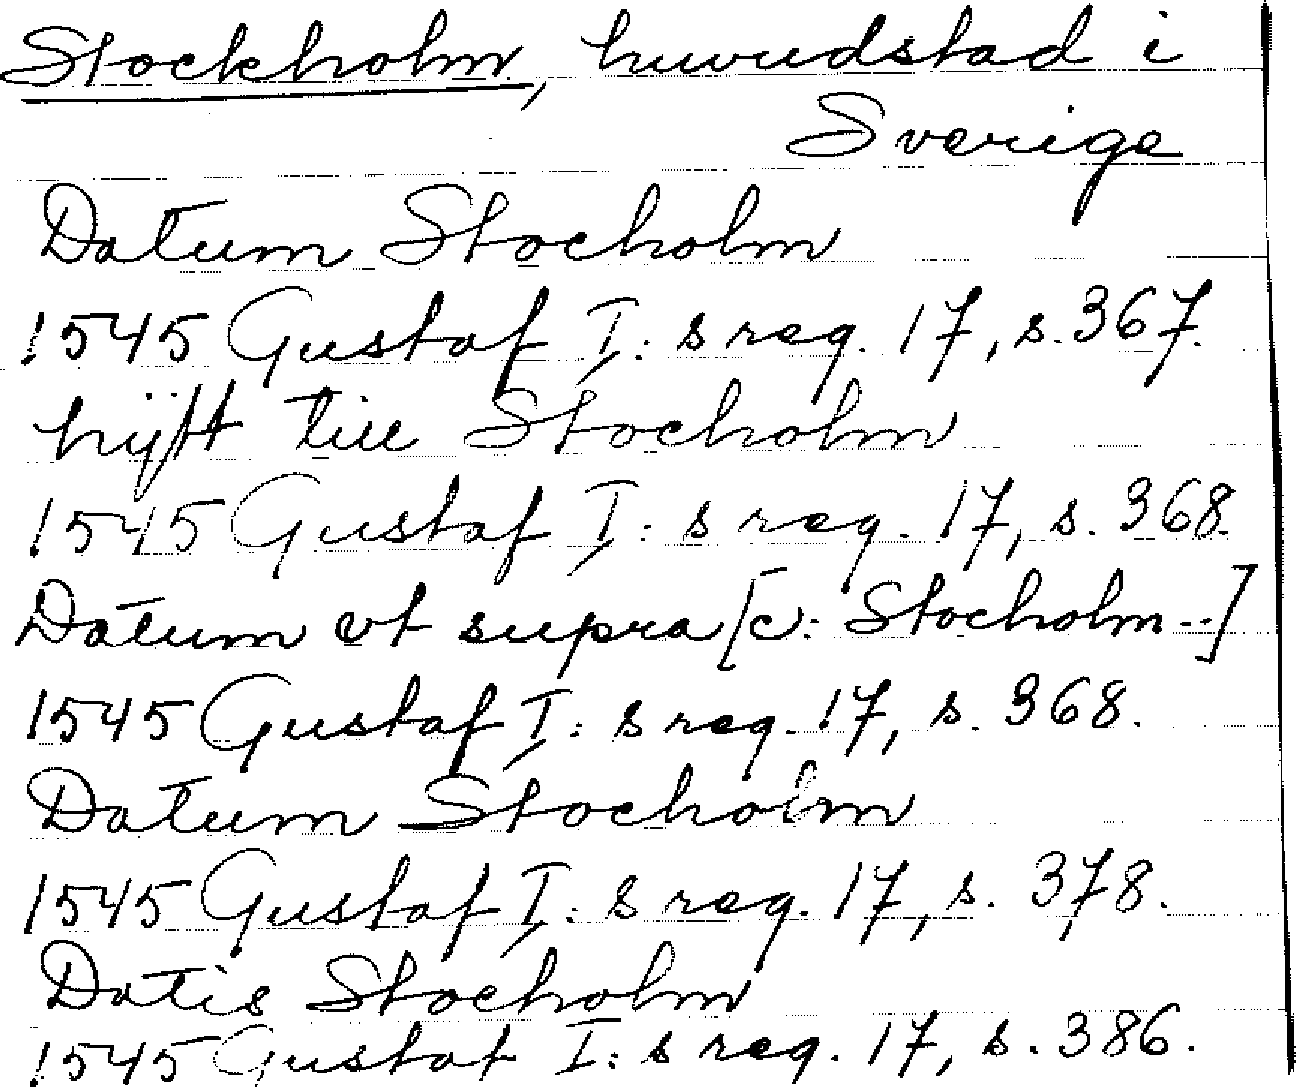 Stockholm, huvudstad i
Sverige
Datum Stocholm
1545 Gustaf I: s reg. 17, s. 367.
hijtt till Stocholm
1545 Gustaf I: s reg. 17, s. 368.
Datum vt supra [c: Stocholm--]
1545 Gustaf I: s reg. 17, s. 368.
Datum Stocholm
1545 Gustaf I: s reg. 17, s. 378.
Datis Stocholm
1545 Gustaf I: s reg. 17, s. 386.